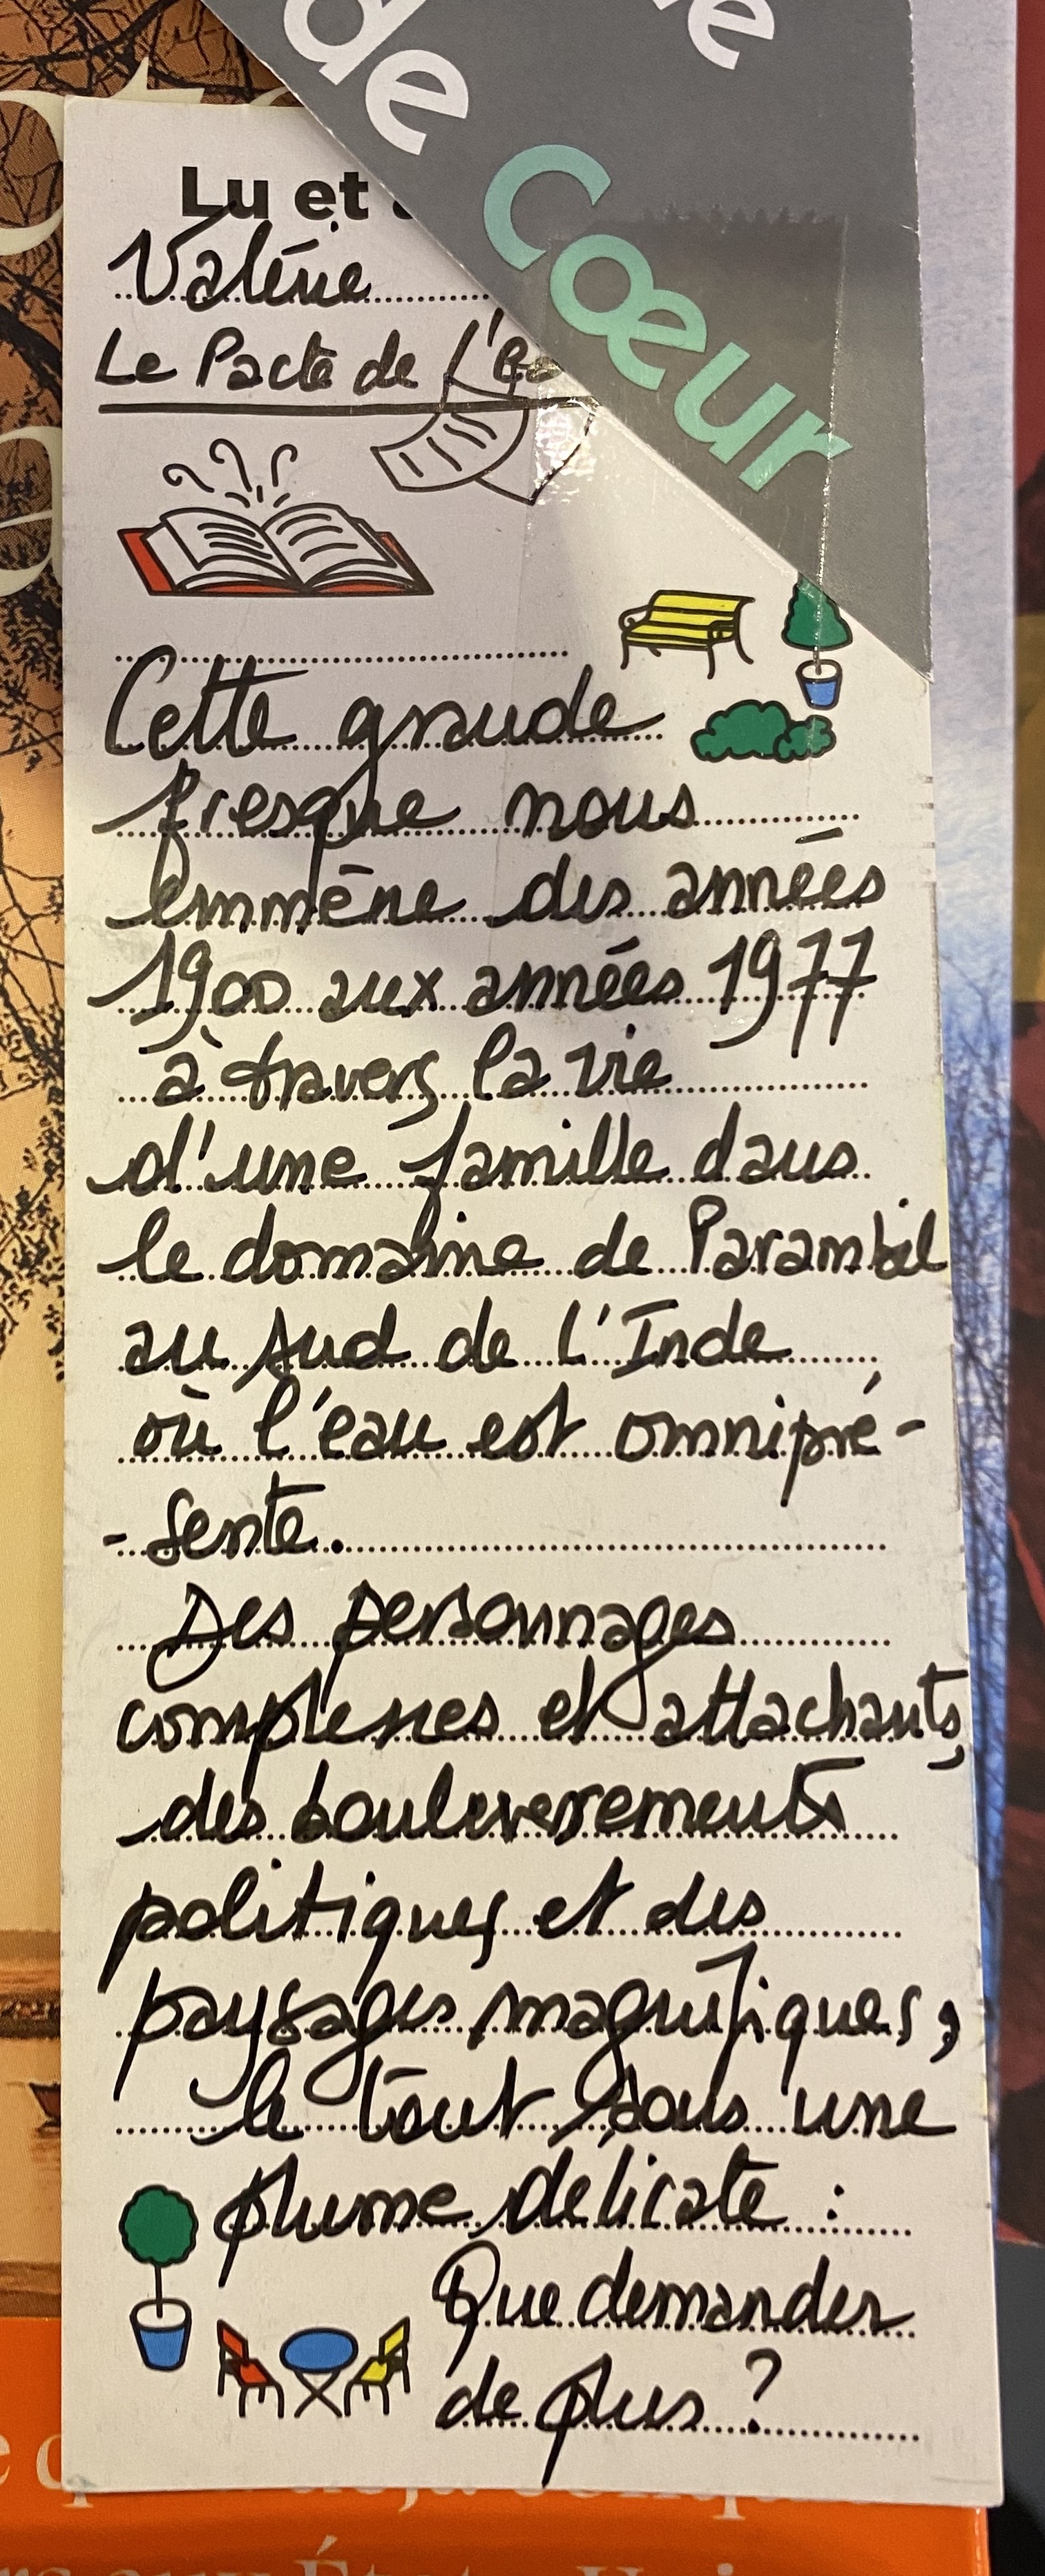 de
Cœur
Lu et
Valérie
Le Pacte de L'ea
Cette grande
fresque nous
emmène des années
1900 aux années 1977
à travers la vie
d'une famille dans
le domaine de Parambil
au Sud de L'Inde
où l'eau est omnipré-
-sente.
Des personnages
complexes et attachants,
des bouleversements
politiques et des
paysages magnifiques,
le tout sous une
plume délicate :
Que demander
de plus ?